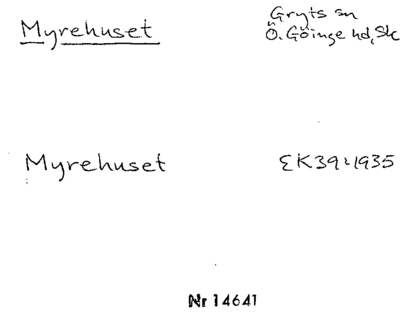 Myrehuset
Gryts sn
Ö. Göinge hd, Sk
Myrehuset
EK39:1935
Nr 14641